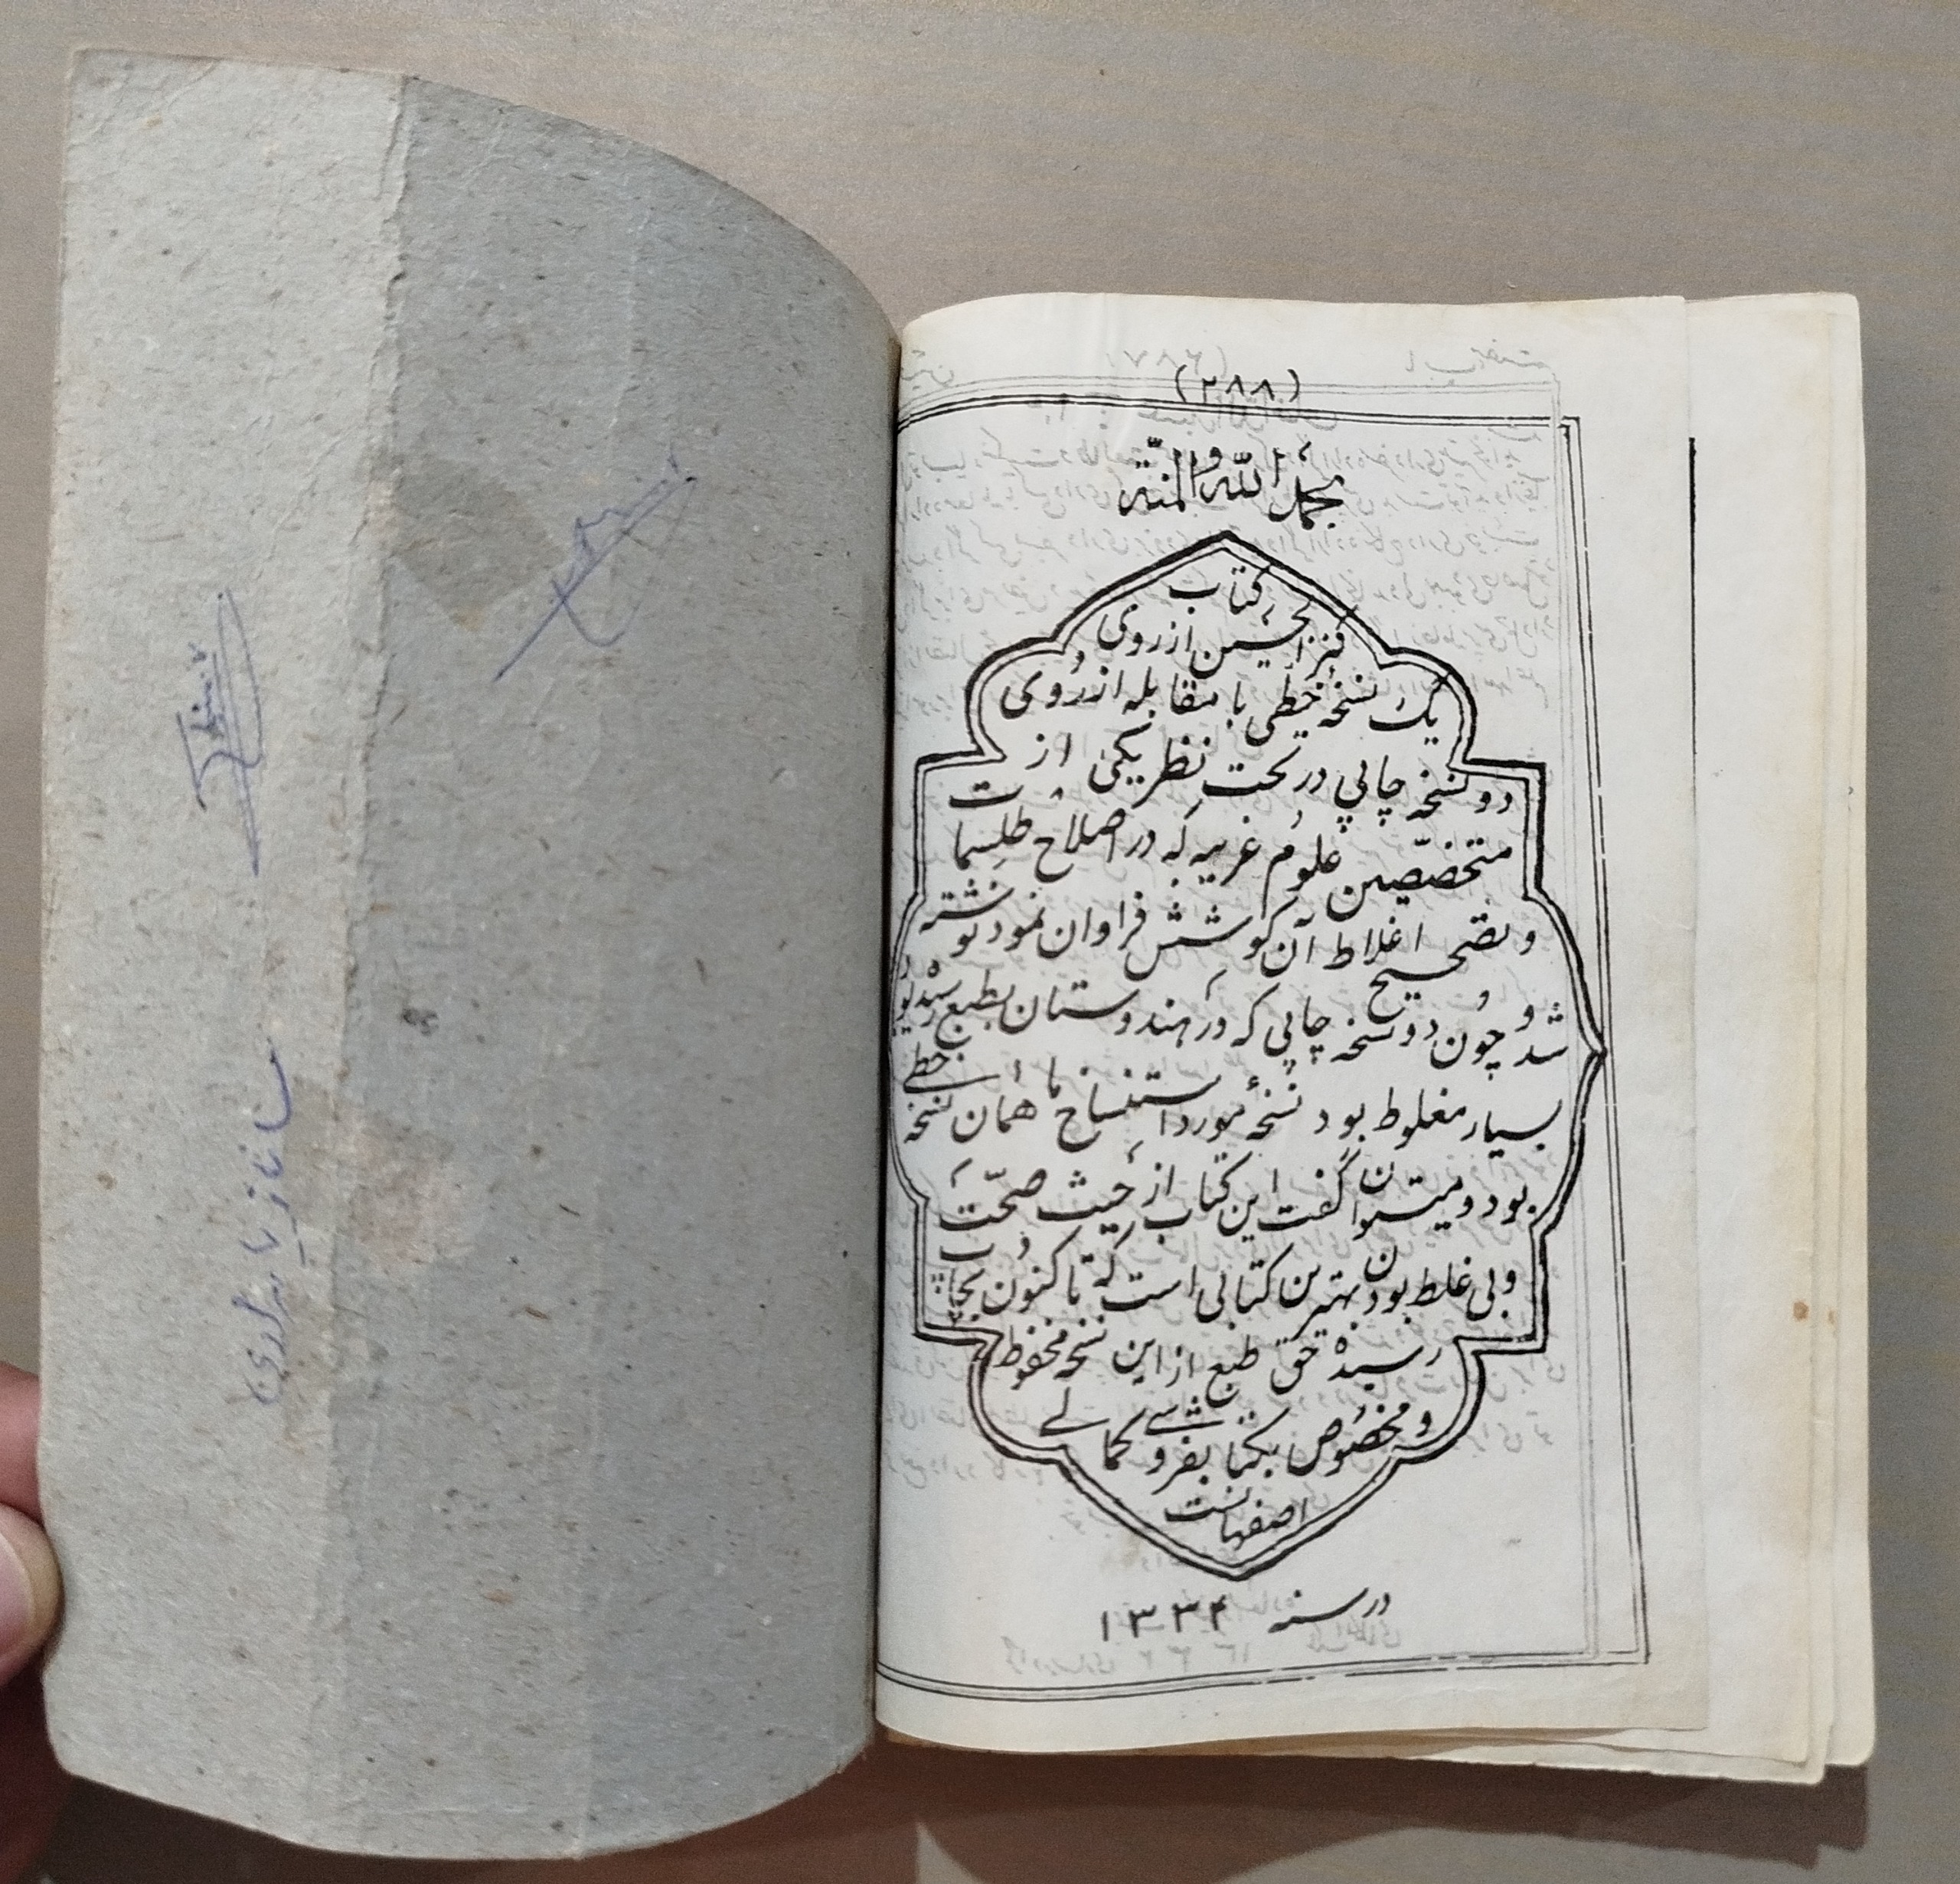 (۲۸۸)
بحمد الله والمنة
کتاب
کنز الحسین از روی
یک نسخه خطی با مقابله از روی
دو نسخه چاپی در تحت نظر یکی از
متخصصین علوم غریبه که در اصلاح طلسمات
و تصحیح اغلاط آن کوشش فراوان نموده نوشته
شد و چون دو نسخه چاپی که در هندوستان بطبع رسیده بود
بسیار مغلوط بود نسخه مورد استنساخ ما همان نسخه خطی
بود و میتوان گفت این کتاب از حیث صحت
و بی غلط بودن بهترین کتابی است که تا کنون بچاپ
رسیده حق طبع از این نسخه محفوظ
و مخصوص بکتابفروشی کمالی
اصفهانست
در سنه ۱۳۳۴